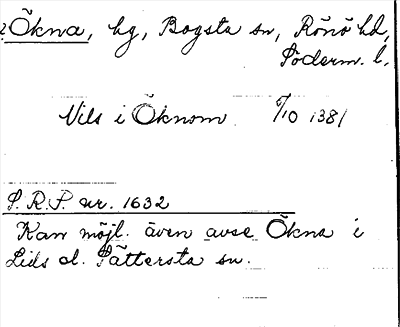 Ökna, hg, Bogsta sn, Rönö hd,
Söderm. l.
Nils i Öknom 7/10 1381
S. R. P. nr. 1632
Kan möjl. även avse Ökna i
Lids el. Sättersta sn.